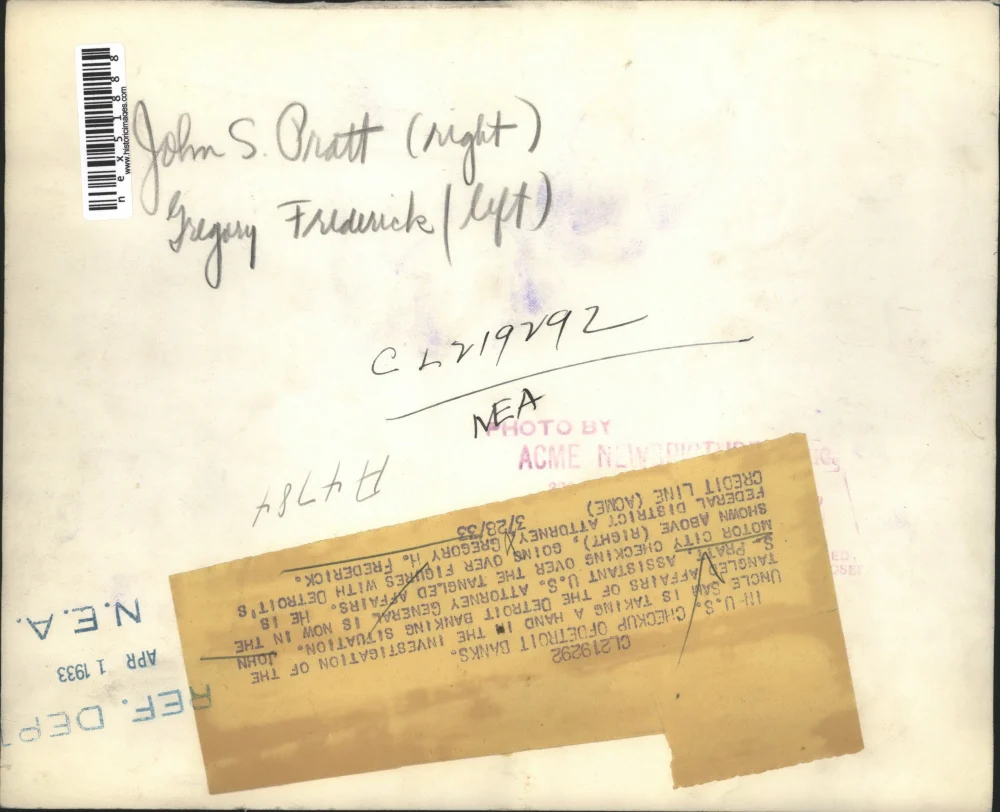 www.historicimages.com
John S. Pratt (right)
Gregory Frederick (left)
CL219292
NEA
PHOTO BY
ACME
A4784
CL219292
IN U.S. CHECKUP OFDETROIT BANKS.
UNCLE SAM IS TAKING A HAND IN THE INVESTIGATION OF THE
TANGLED AFFAIRS OF THE DETROIT BANKING SITUATION. JOHN
S. PRATT, ASSISTANT U.S. ATTORNEY GENERAL IS NOW IN THE
MOTOR CITY CHECKING OVER THE TANGLED AFFAIRS. HE IS
SHOWN ABOVE (RIGHT), GOING OVER FIGURES WITH DETROIT'S
FEDERAL DISTRICT ATTORNEY GREGORY H. FREDERICK.
CREDIT LINE (ACME) 3/28/33
REF. DEPT
APR 1 1933
N.E.A.